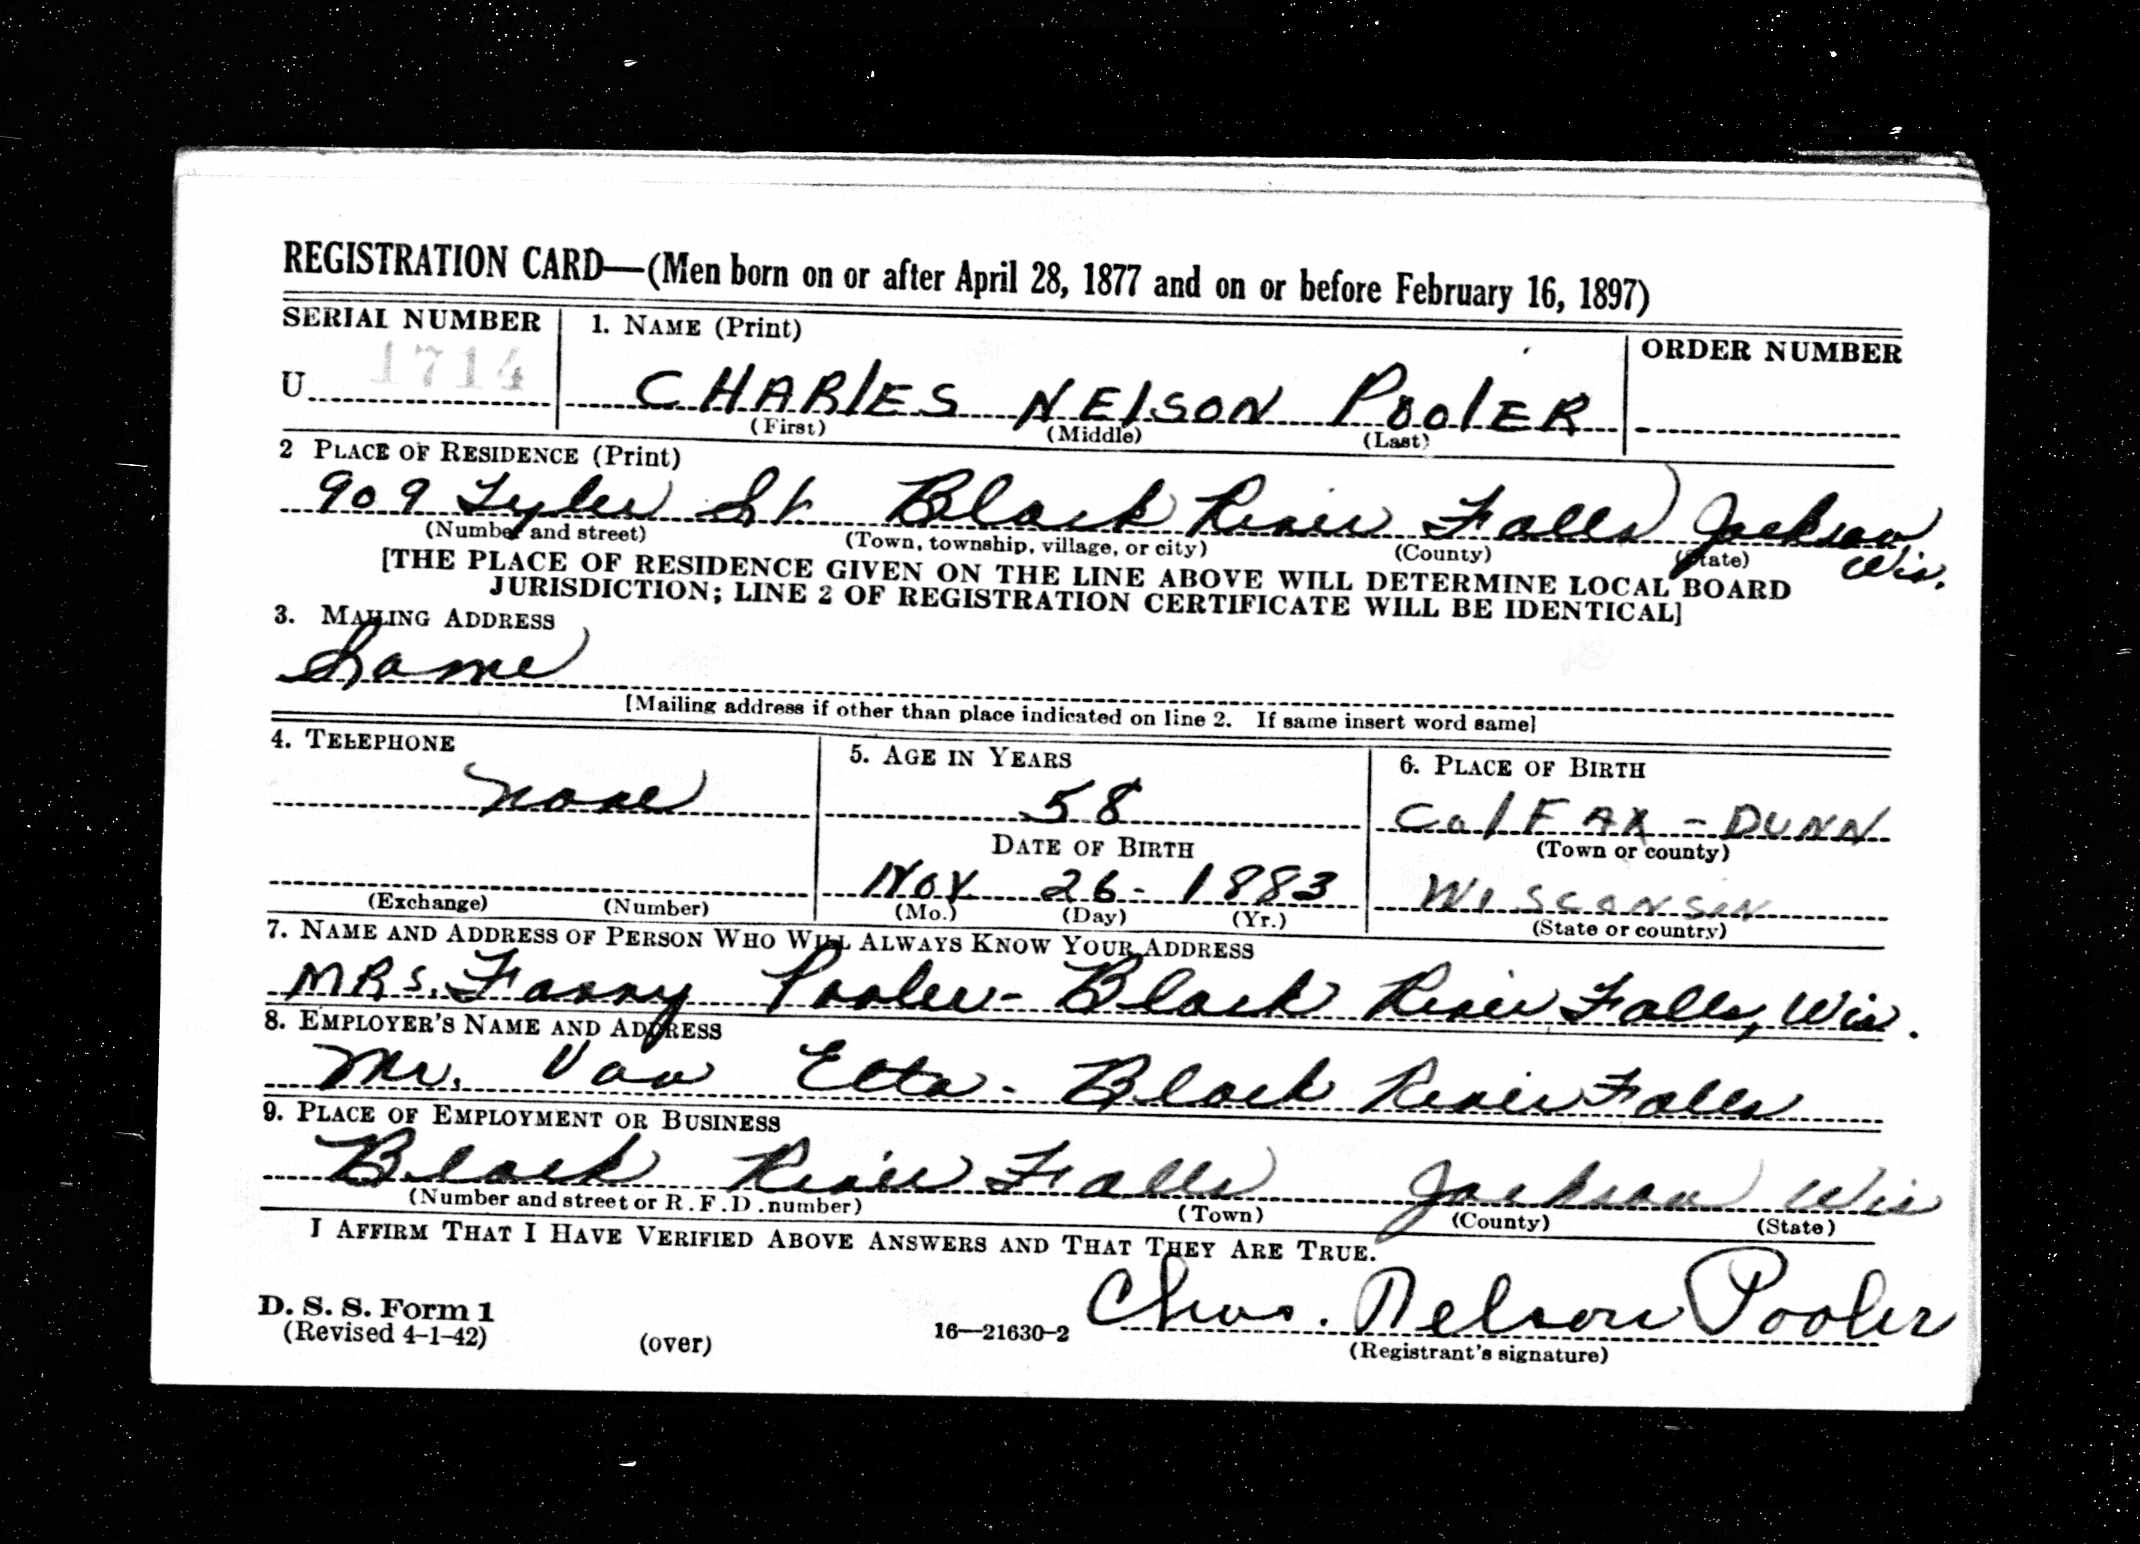 REGISTRATION CARD—(Men born on or after April 28, 1877 and on or before February 16, 1897)
SERIAL NUMBER 1. NAME (Print) ORDER NUMBER
U 1714 CHARlES NElSON POOlER
(First) (Middle) (Last)
2 PLACE OF RESIDENCE (Print)
909 Tyler St Black River Falls Jackson
(Number and street) (Town, township, village, or city) (County) (State) Wis.
[THE PLACE OF RESIDENCE GIVEN ON THE LINE ABOVE WILL DETERMINE LOCAL BOARD
JURISDICTION; LINE 2 OF REGISTRATION CERTIFICATE WILL BE IDENTICAL]
3. MAILING ADDRESS
Same
[Mailing address if other than place indicated on line 2. If same insert word same]
4. TELEPHONE 5. AGE IN YEARS 6. PLACE OF BIRTH
none 58 ColFAX - DUNN
DATE OF BIRTH (Town or county)
Nov 26 - 1883 WISCONSIN
(Exchange) (Number) (Mo.) (Day) (Yr.) (State or country)
7. NAME AND ADDRESS OF PERSON WHO WILL ALWAYS KNOW YOUR ADDRESS
MRS. Fanny Pooler - Black River Falls, Wis.
8. EMPLOYER'S NAME AND ADDRESS
Mr. Van Etta - Black River Falls
9. PLACE OF EMPLOYMENT OR BUSINESS
Black River Falls Jackson Wis
(Number and street or R. F. D. number) (Town) (County) (State)
I AFFIRM THAT I HAVE VERIFIED ABOVE ANSWERS AND THAT THEY ARE TRUE.
D. S. S. Form 1 Chas. Nelson Pooler
(Revised 4-1-42) (over) 16—21630-2 (Registrant's signature)